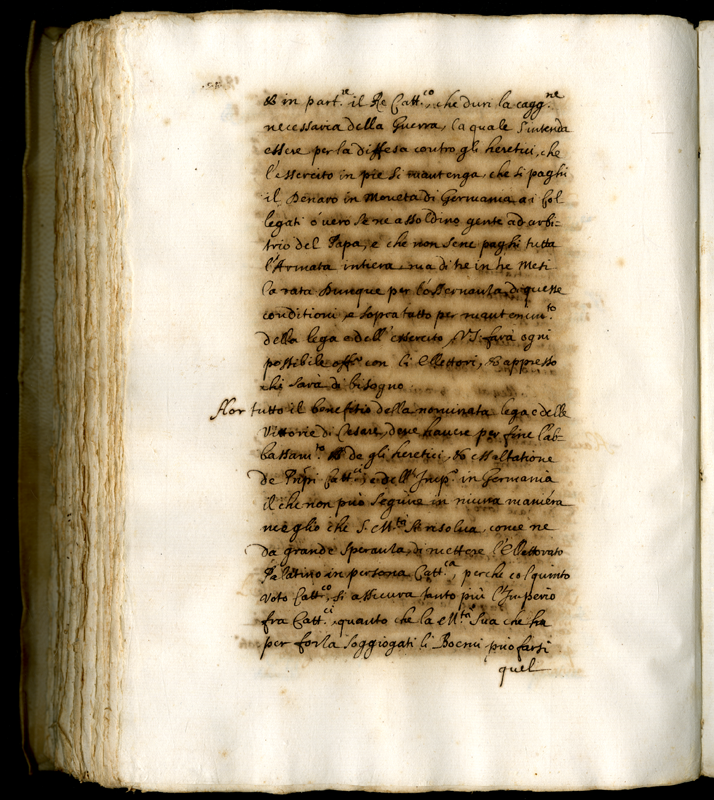 & in part.re il Re Catt.co, che duri la cagg.ne
necessaria della Guerra, la quale s'intenda
essere per la diffesa contro gli heretici, che
l'essercito in pie si mantenga, che si paghi
il Denaro in Moneta di Germania a i Col
legati ò vero se ne assoldino gente ad arbi-
trio del Papa, e che non sene paghi tutta
l'Armata intiera, ma di tre in tre Mesi
la rata Dunque per l'osservanza di queste
conditioni e sopra tutto per mantenim.to
della lega e dell'essercito V.S. farà ogni
possibile off.o con li Elettori, & appresso
chi sarà di bisogno
Hor tutto il benefitio della nominata lega e delle
Vittorie di Cesare, deve havere per fine l'ab-
bassam.to de gli heretici, & essaltatione
de Pnpi Catt.ci, e dell'Imp.o in Germania
il che non può seguire in niuna maniera
meglio che S. M.tà si risolva, come ne
da grande speranza, di mettere l'Elettorato
Palatino in persona Catt.ca, perche col quinto
voto Catt.co, si assicura tanto più l'Imperio
fra Catt.ci, quanto che la M.tà Sua che ha
per forza soggiogati li Boemi può farsi
quel